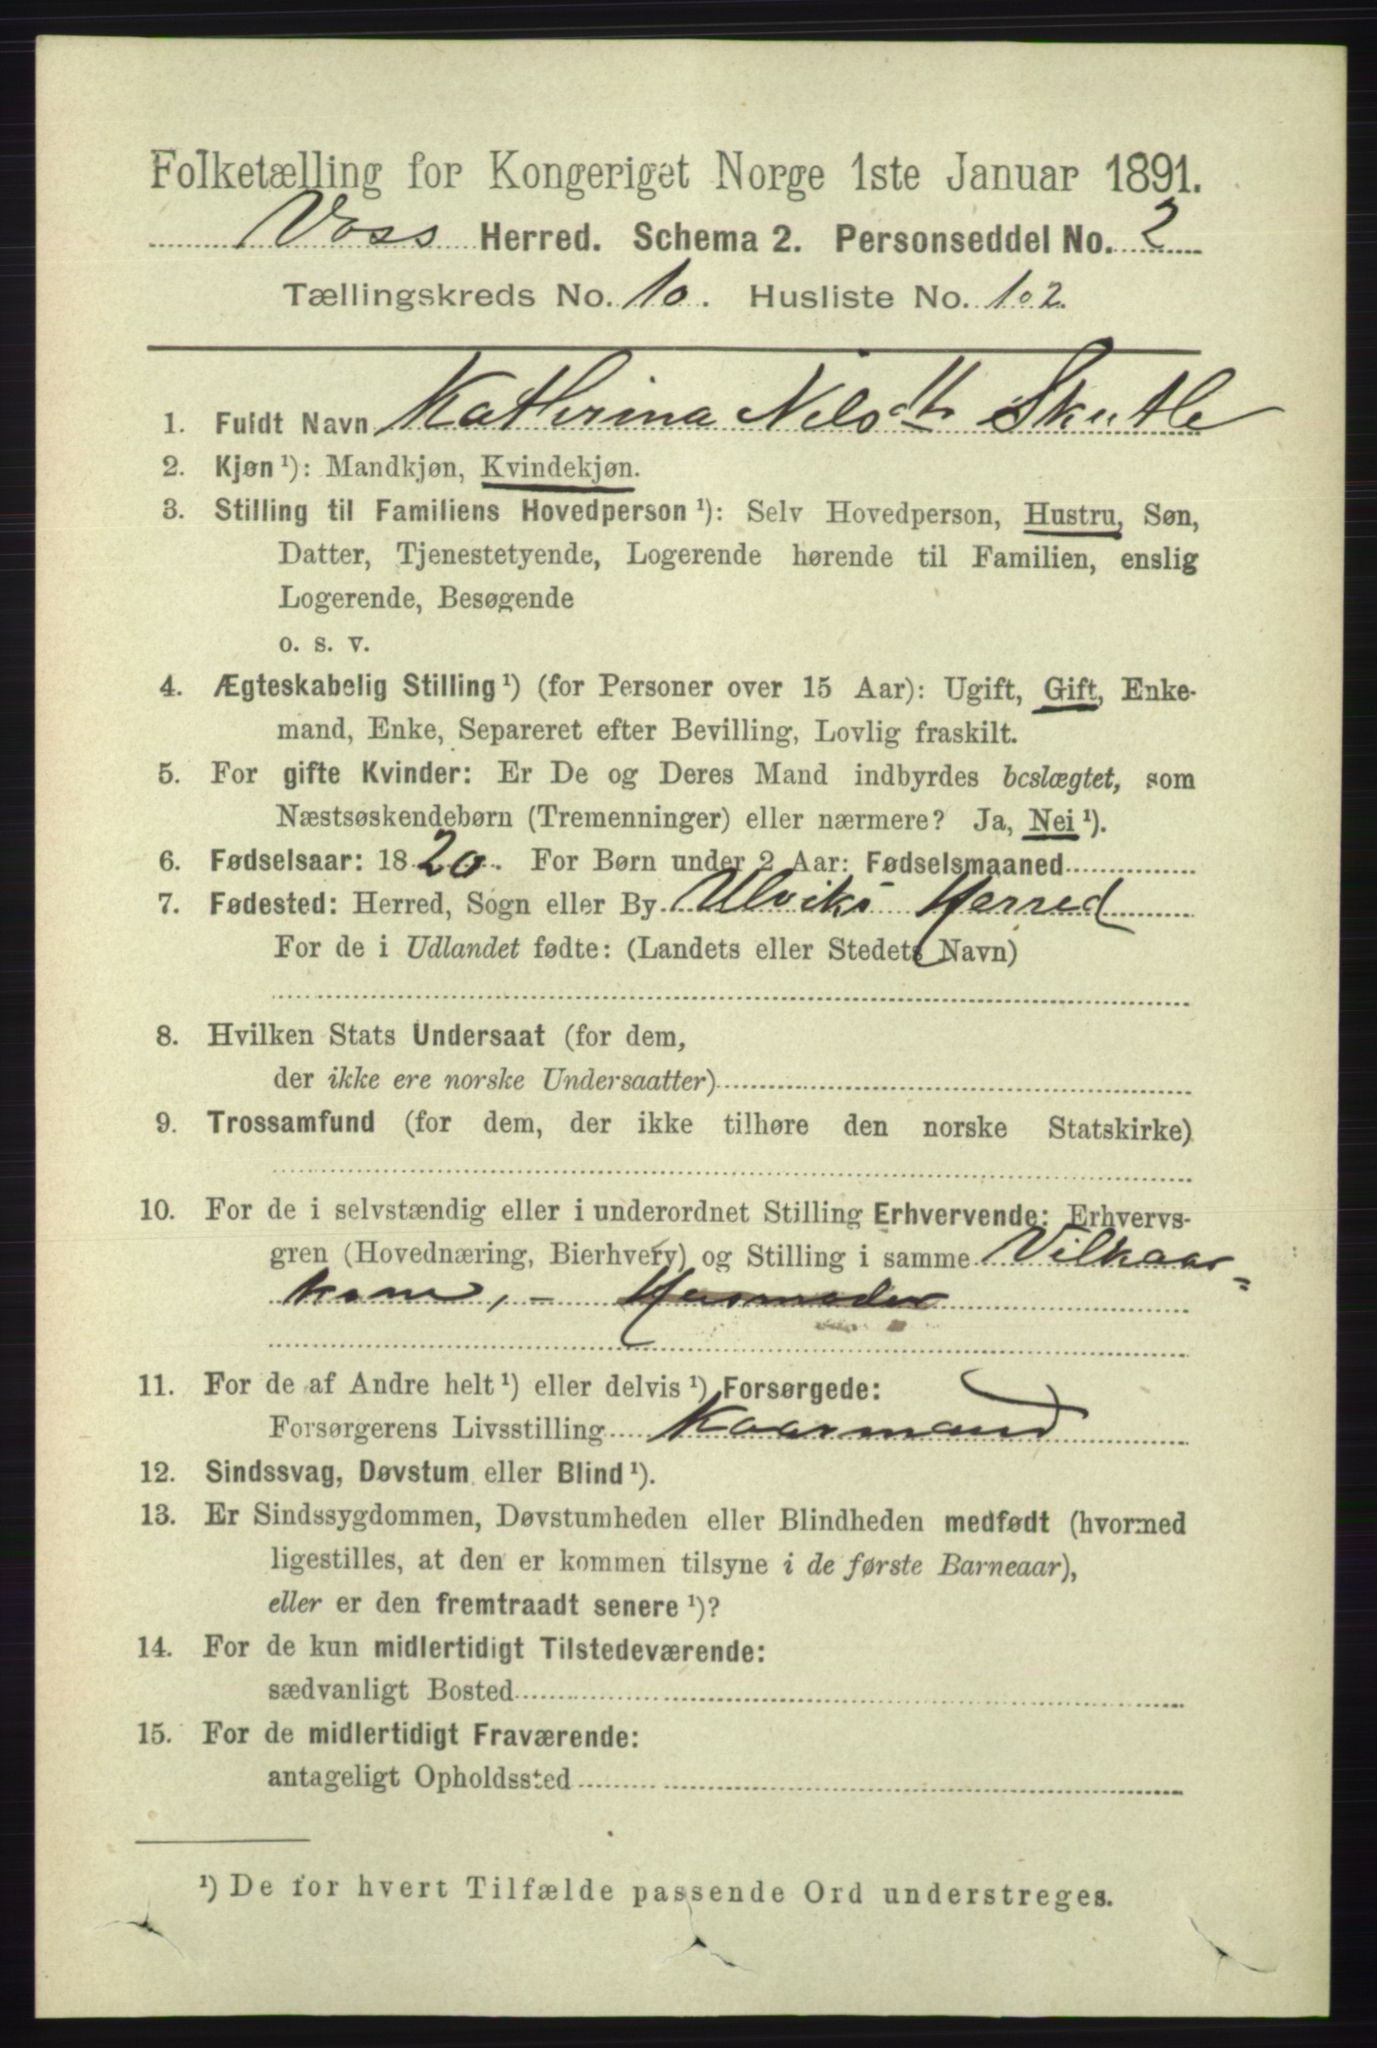 Folketælling for Kongeriget Norge 1ste Januar 1891.
Voss Herred. Schema 2. Personseddel No. 2
Tællingskreds No. 10. Husliste No. 102.
1. Fuldt Navn Katherina Nilsdtr Skutle
2. Kjøn ¹): Mandkjøn, Kvindekjøn.
3. Stilling til Familiens Hovedperson ¹): Selv Hovedperson, Hustru, Søn,
Datter, Tjenestetyende, Logerende hørende til Familien, enslig
Logerende, Besøgende
o. s. v.
4. Ægteskabelig Stilling ¹) (for Personer over 15 Aar): Ugift, Gift, Enke-
mand, Enke, Separeret efter Bevilling, Lovlig fraskilt.
5. For gifte Kvinder: Er De og Deres Mand indbyrdes beslægtet, som
Næstsøskendebørn (Tremenninger) eller nærmere? Ja, Nei ¹).
6. Fødselsaar: 1820. For Børn under 2 Aar: Fødselsmaaned
7. Fødested: Herred, Sogn eller By Ulviks Herred
For de i Udlandet fødte: (Landets eller Stedets Navn)
8. Hvilken Stats Undersaat (for dem,
der ikke ere norske Undersaatter)
9. Trossamfund (for dem, der ikke tilhøre den norske Statskirke)
10. For de i selvstændig eller i underordnet Stilling Erhvervende: Erhvervs-
gren (Hovednæring, Bierhverv) og Stilling i samme Vilkaar=
kone, – Husmoder
11. For de af Andre helt ¹) eller delvis ¹) Forsørgede:
Forsørgerens Livsstilling Kaarmand
12. Sindssvag, Døvstum eller Blind ¹).
13. Er Sindssygdommen, Døvstumheden eller Blindheden medfødt (hvormed
ligestilles, at den er kommen tilsyne i de første Barneaar),
eller er den fremtraadt senere ¹)?
14. For de kun midlertidigt Tilstedeværende:
sædvanligt Bosted
15. For de midlertidigt Fraværende:
antageligt Opholdssted
¹) De for hvert Tilfælde passende Ord understreges.